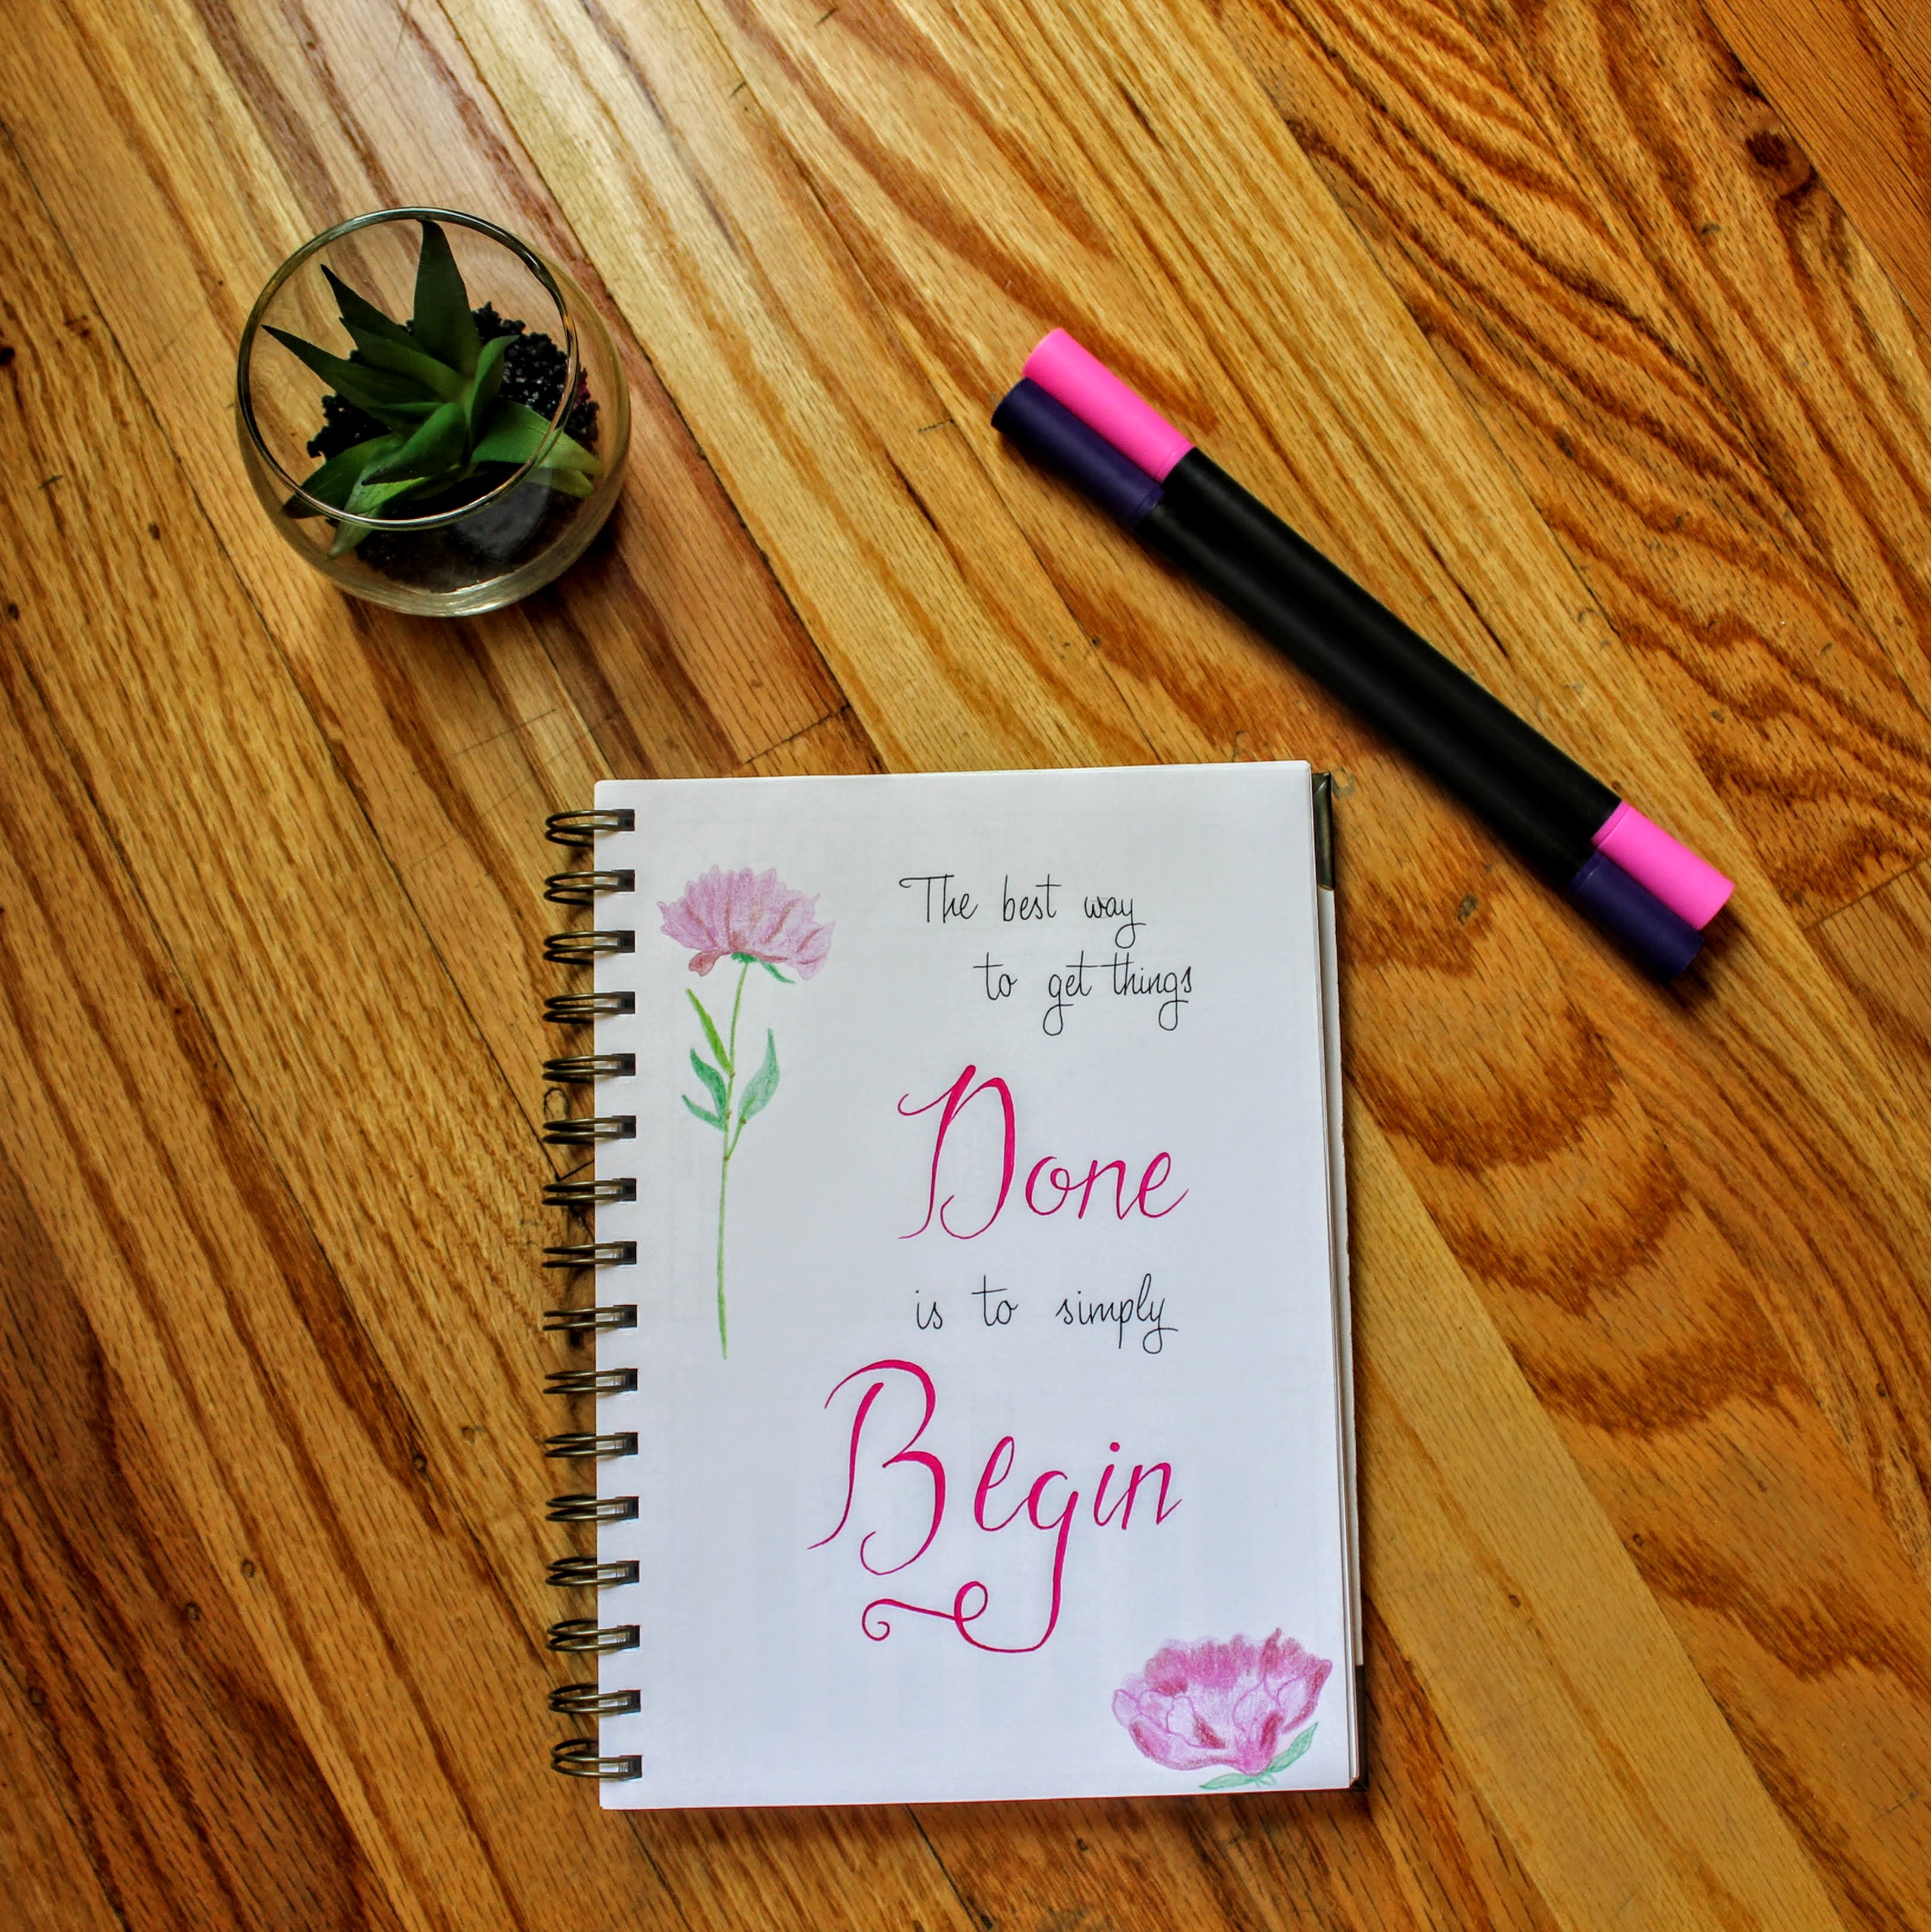 The best way
to get things
Done
is to simply
Begin